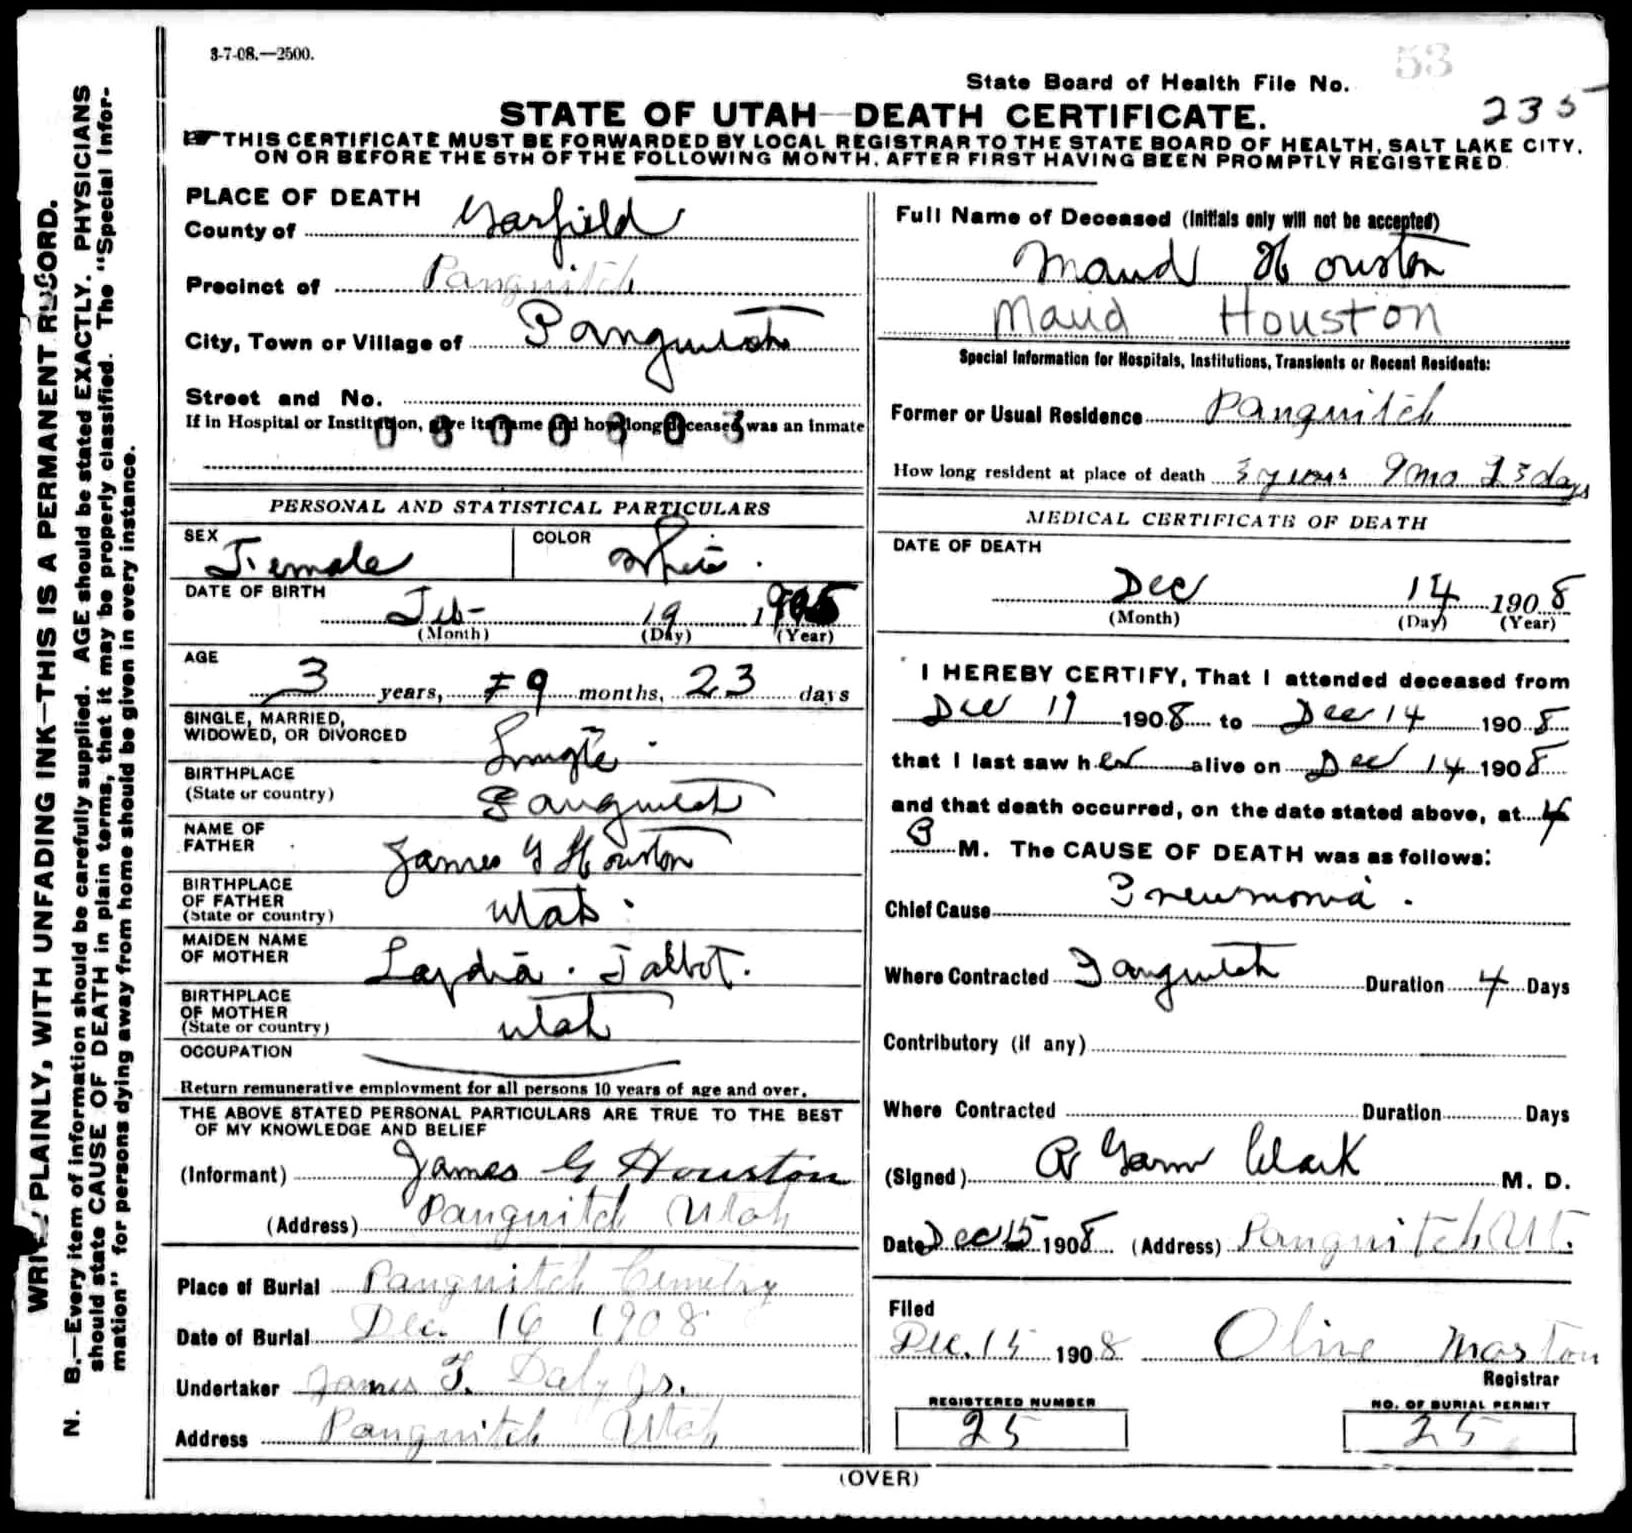 3-7-08.—2500.
53
State Board of Health File No.
235
STATE OF UTAH—DEATH CERTIFICATE.
THIS CERTIFICATE MUST BE FORWARDED BY LOCAL REGISTRAR TO THE STATE BOARD OF HEALTH, SALT LAKE CITY,
ON OR BEFORE THE 5TH OF THE FOLLOWING MONTH, AFTER FIRST HAVING BEEN PROMPTLY REGISTERED.
WRITE PLAINLY, WITH UNFADING INK—THIS IS A PERMANENT RECORD.
N. B.—Every item of information should be carefully supplied. AGE should be stated EXACTLY. PHYSICIANS
should state CAUSE OF DEATH in plain terms, that it may be properly classified. The "Special Infor-
mation" for persons dying away from home should be given in every instance.
PLACE OF DEATH
County of Garfield
Precinct of Panguitch
City, Town or Village of Panguitch
Street and No.
If in Hospital or Institution, give its name and how long deceased was an inmate
PERSONAL AND STATISTICAL PARTICULARS
SEX Female COLOR White.
DATE OF BIRTH
Feb- 19 1905
(Month) (Day) (Year)
AGE
3 years, 9 months, 23 days
SINGLE, MARRIED,
WIDOWED, OR DIVORCED Single.
BIRTHPLACE
(State or country) Panguitch
NAME OF
FATHER James G Houston
BIRTHPLACE
OF FATHER
(State or country) Utah.
MAIDEN NAME
OF MOTHER Lydia. Talbot.
BIRTHPLACE
OF MOTHER
(State or country) Utah
OCCUPATION
Return remunerative employment for all persons 10 years of age and over.
THE ABOVE STATED PERSONAL PARTICULARS ARE TRUE TO THE BEST
OF MY KNOWLEDGE AND BELIEF
(Informant) James G Houston
(Address) Panguitch Utah
Place of Burial Panguitch Cemetry
Date of Burial Dec. 16 1908
Undertaker James T. Daly Jr.
Address Panguitch Utah
Full Name of Deceased (Initials only will not be accepted)
Maud Houston
Maud Houston
Special Information for Hospitals, Institutions, Transients or Recent Residents:
Former or Usual Residence Panguitch
How long resident at place of death 3 years 9 mo 23 days
MEDICAL CERTIFICATE OF DEATH
DATE OF DEATH
Dec 14 1908
(Month) (Day) (Year)
I HEREBY CERTIFY, That I attended deceased from
Dec 1908 to Dec 14 1908
that I last saw her alive on Dec 14 1908
and that death occurred, on the date stated above, at 4
P M. The CAUSE OF DEATH was as follows:
Chief Cause Pneumonia.
Where Contracted Panguitch Duration 4 Days
Contributory (if any)
Where Contracted Duration Days
(Signed) R Garn Clark M. D.
Date Dec 15 1908 (Address) Panguitch Ut.
Filed
Dec. 15 1908 Olive
Registrar
REGISTERED NUMBER
25
NO. OF BURIAL PERMIT
25
(OVER)